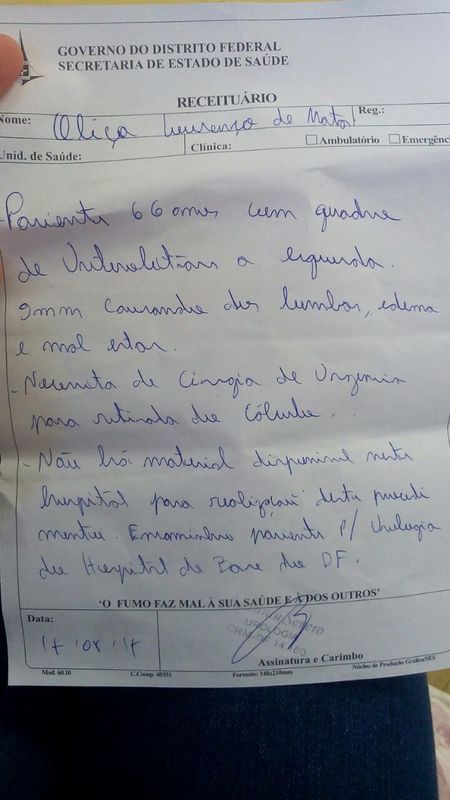 GOVERNO DO DISTRITO FEDERAL
SECRETARIA DE ESTADO DE SAÚDE
RECEITUÁRIO
Nome: Lourenço de Matos Reg.:
Unid. de Saúde: Clínica: Ambulatório Emergênc
- Paciente 66 anos com quadro
de Ureterolitíase a esquerda.
9mm causando dor lombar, edema
e mal estar.
- Necessita de Cirurgia de Urgencia
para retirada do Cálculo.
- Não há material disponivel neste
hospital para realização deste procedi
mento. Encaminho paciente p/ Urologia
do Hospital de Base do DF.
'O FUMO FAZ MAL À SUA SAÚDE E À DOS OUTROS'
Data:
UROLOGIA
CRM-DF
Assinatura e Carimbo
Mod. 60.10 C.Comp. 40351 Formato: 148x210mm Núcleo de Produção Gráfica/SES